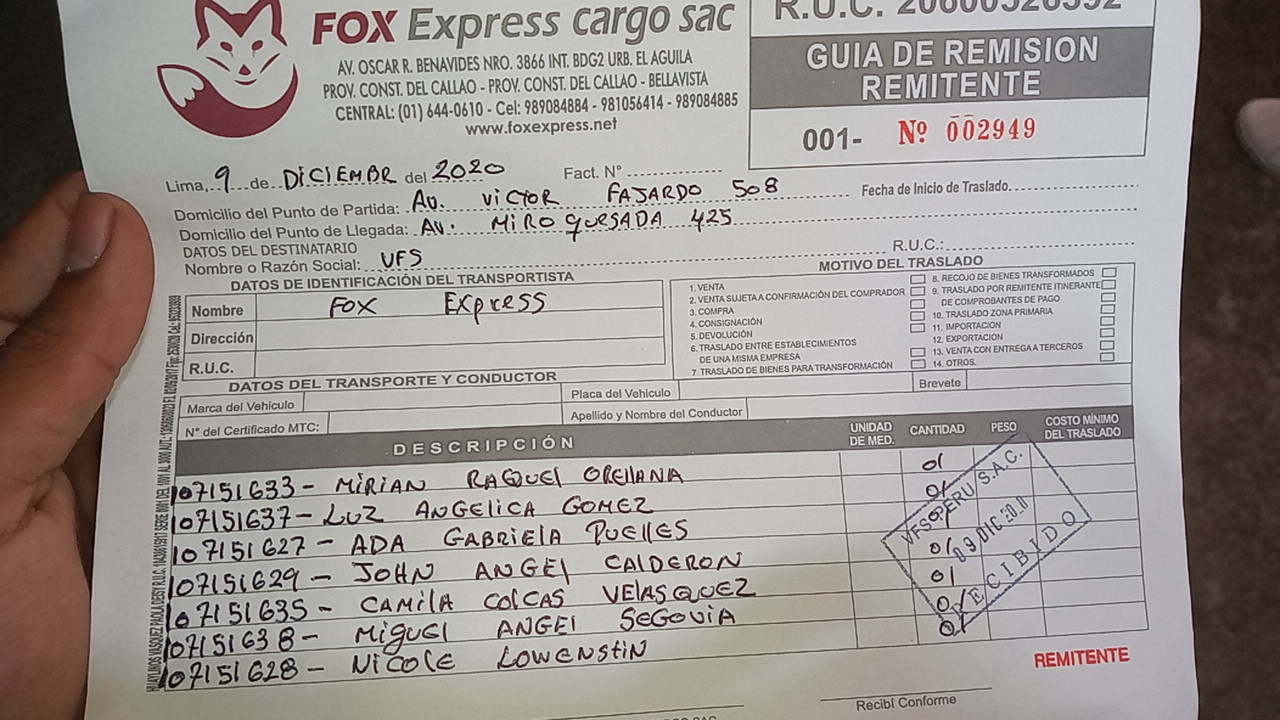 FOX Express cargo sac
AV. OSCAR R. BENAVIDES NRO. 3866 INT. BDG2 URB. EL AGUILA
PROV. CONST. DEL CALLAO - PROV. CONST. DEL CALLAO - BELLAVISTA
CENTRAL: (01) 644-0610 - Cel: 989084884 - 981056414 - 989084885
www.foxexpress.net
R.U.C.
GUIA DE REMISION
REMITENTE
001- Nº 002949
Lima, 9 de DICIEMBR del 2020 Fact. N°
Domicilio del Punto de Partida: AV. VICTOR FAJARDO 508 Fecha de Inicio de Traslado
Domicilio del Punto de Llegada: AV. MIRO QUESADA 425
DATOS DEL DESTINATARIO
Nombre o Razón Social: VFS R.U.C.:
DATOS DE IDENTIFICACIÓN DEL TRANSPORTISTA
Nombre FOX EXPRESS
Dirección
R.U.C.
MOTIVO DEL TRASLADO
1. VENTA
2. VENTA SUJETA A CONFIRMACIÓN DEL COMPRADOR
3. COMPRA
4. CONSIGNACIÓN
5. DEVOLUCIÓN
6. TRASLADO ENTRE ESTABLECIMIENTOS
DE UNA MISMA EMPRESA
7. TRASLADO DE BIENES PARA TRANSFORMACIÓN
8. RECOJO DE BIENES TRANSFORMADOS
9. TRASLADO POR REMITENTE ITINERANTE
DE COMPROBANTES DE PAGO
10. TRASLADO ZONA PRIMARIA
11. IMPORTACION
12. EXPORTACION
13. VENTA CON ENTREGA A TERCEROS
14. OTROS.
DATOS DEL TRANSPORTE Y CONDUCTOR
Marca del Vehiculo Placa del Vehiculo Brevete
N° del Certificado MTC: Apellido y Nombre del Conductor
DESCRIPCIÓN UNIDAD DE MED. CANTIDAD PESO COSTO MÍNIMO DEL TRASLADO
107151633 - MIRIAN RAQUEL ORELLANA 01
107151637 - LUZ ANGELICA GOMEZ 01
107151627 - ADA GABRIELA PUELLES 01
107151629 - JOHN ANGEL CALDERON 01
107151635 - CAMILA COLCAS VELASQUEZ 01
107151638 - MIGUEL ANGEL SEGOVIA 01
107151628 - NICOLE LOWENSTIN 01
VFS PERU S.A.C.
09 DIC 20
RECIBIDO
REMITENTE
Recibí Conforme